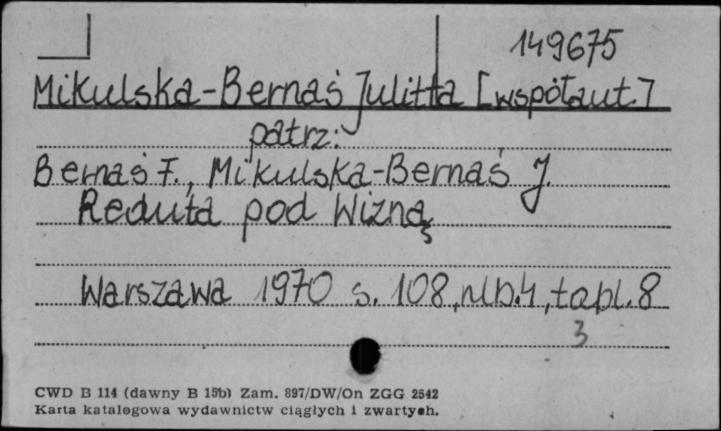 149675
Mikulska-Bernaś Julitta [współaut.]
patrz:
Bernaś F., Mikulska-Bernaś J.
Reduta pod Wizną
Warszawa 1970 s. 108, nlb. 4, tabl. 8
3
CWD B 114 (dawny B 15b) Zam. 897/DW/On ZGG 2542
Karta katalogowa wydawnictw ciągłych i zwartych.